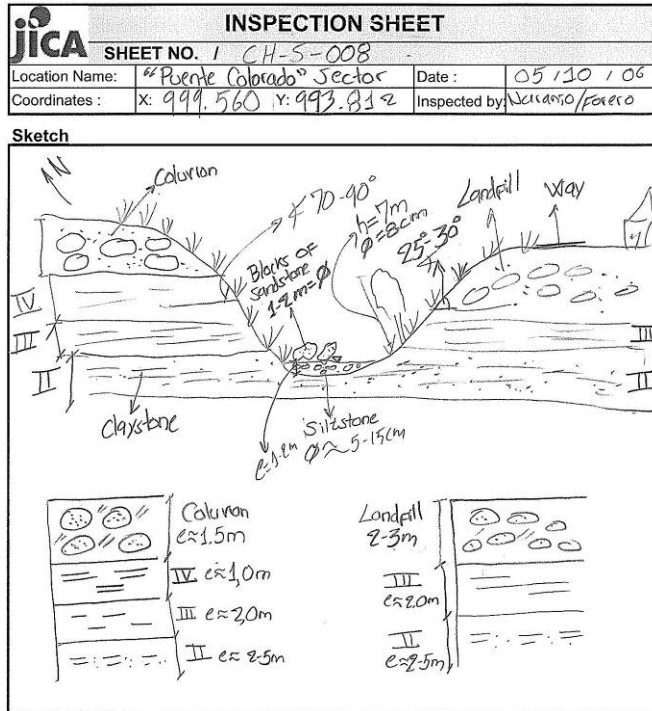 JICA
INSPECTION SHEET
SHEET NO. 1 CH-S-008
Location Name: "Puente Colorado" Sector Date : 05/10/06
Coordinates : X: 999.560 Y: 993.812 Inspected by: Naranjo/Forero
Sketch
N
Coluvion
∡ 70-90°
h=7m
Ø=8cm
25°-30°
Landfill
Way
Blocks of
sandstone
1-2m=Ø
IV
III
II
III
II
Claystone
Siltstone
Ø ≈ 5-15cm
Coluvion
e≈1.5m
IV e≈1,0m
III e≈2,0m
II e≈2-5m
Landfill
2-3m
III
e≈2.0m
II
e≈2-5m